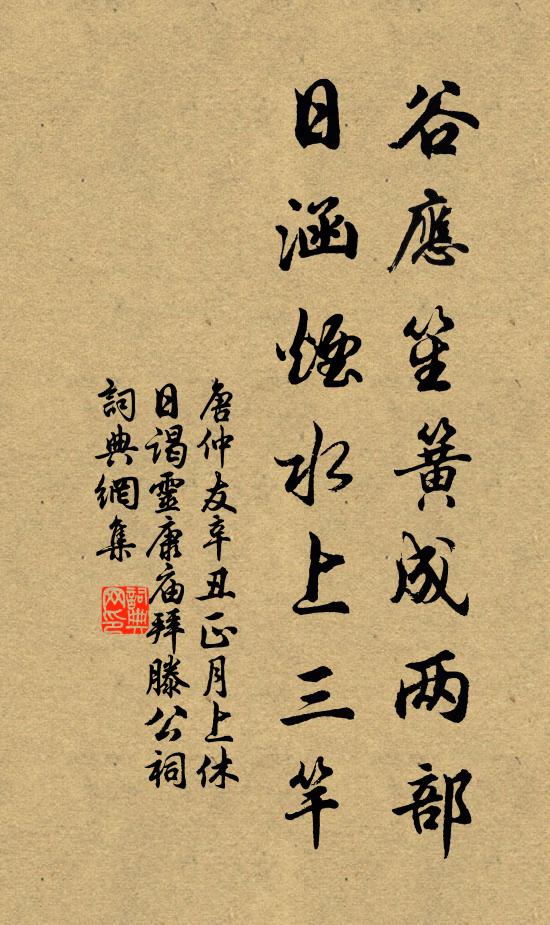 谷應笙簧成两部
日涵煙水上三竿
唐仲友辛丑正月上休
日謁靈康庙拜滕公祠
詞典網集
詞典
网印